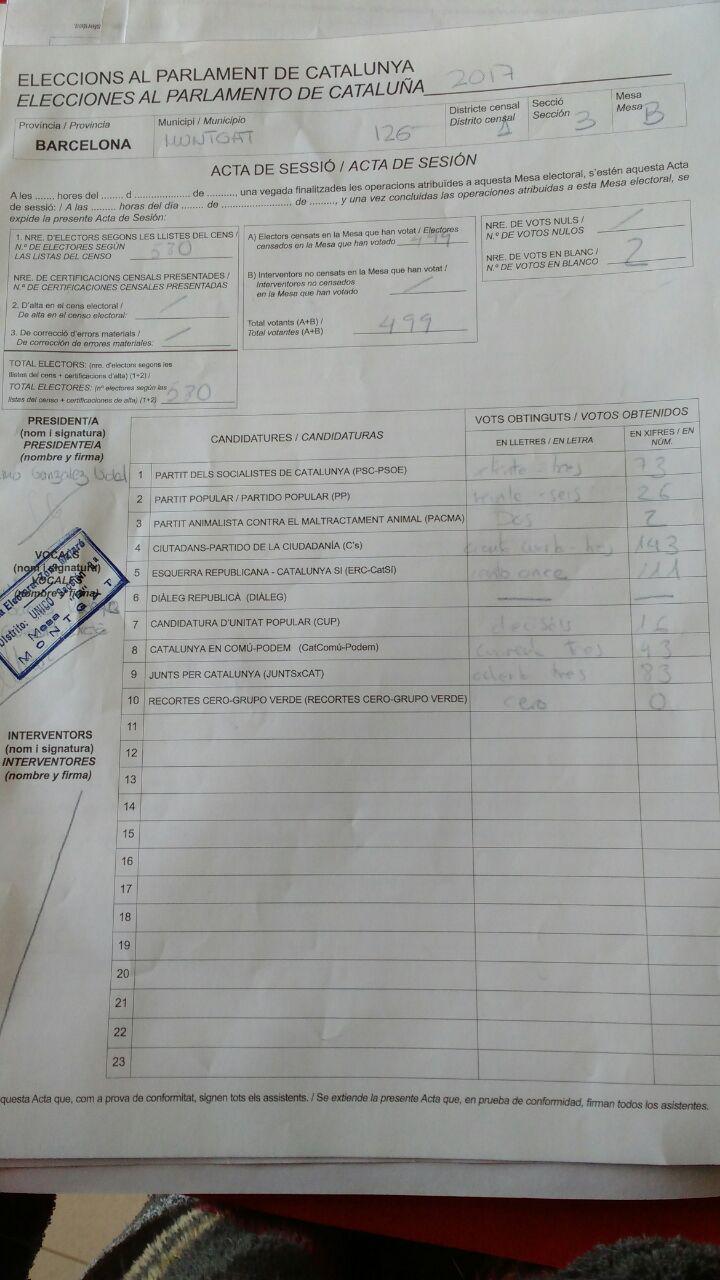 ELECCIONS AL PARLAMENT DE CATALUNYA
ELECCIONES AL PARLAMENTO DE CATALUÑA 2017
Província / Provincia
BARCELONA
Municipi / Municipio
MONTGAT 126
Districte censal
Distrito censal
1
Secció
Sección
3
Mesa
Mesa
B
ACTA DE SESSIÓ / ACTA DE SESIÓN
A les ....... hores del ....... d ................... de .........., una vegada finalitzades les operacions atribuïdes a aquesta Mesa electoral, s'estén aquesta Acta
de sessió: / A las ......... horas del día ....... de ....................... de ........, y una vez concluidas las operaciones atribuidas a esta Mesa electoral, se
expide la presente Acta de Sesión:
1. NRE. D'ELECTORS SEGONS LES LLISTES DEL CENS /
N.º DE ELECTORES SEGÚN
LAS LISTAS DEL CENSO 530
NRE. DE CERTIFICACIONS CENSALS PRESENTADES /
N.º DE CERTIFICACIONES CENSALES PRESENTADAS
2. D'alta en el cens electoral /
De alta en el censo electoral:
3. De correcció d'errors materials /
De corrección de errores materiales:
TOTAL ELECTORS: (nre. d'electors segons les
llistes del cens + certificacions d'alta) (1+2) /
TOTAL ELECTORES: (nº electores según las
listas del censo + certificaciones de alta) (1+2) 530
A) Electors censats en la Mesa que han votat / Electores
censados en la Mesa que han votado 499
B) Interventors no censats en la Mesa que han votat /
Interventores no censados
en la Mesa que han votado
Total votants (A+B) /
Total votantes (A+B) 499
NRE. DE VOTS NULS /
N.º DE VOTOS NULOS
NRE. DE VOTS EN BLANC /
N.º DE VOTOS EN BLANCO 2
PRESIDENT/A
(nom i signatura)
PRESIDENTE/A
(nombre y firma)
González Vidal
VOCALS
(nom i signatura)
VOCALES
(nombre y firma)
Distrito: UNICO
Mesa
MONTGAT
INTERVENTORS
(nom i signatura)
INTERVENTORES
(nombre y firma)
CANDIDATURES / CANDIDATURAS
VOTS OBTINGUTS / VOTOS OBTENIDOS
EN LLETRES / EN LETRA
EN XIFRES / EN NÚM.
1 PARTIT DELS SOCIALISTES DE CATALUNYA (PSC-PSOE) setenta-tres 73
2 PARTIT POPULAR / PARTIDO POPULAR (PP) veinte-seis 26
3 PARTIT ANIMALISTA CONTRA EL MALTRACTAMENT ANIMAL (PACMA) Dos 2
4 CIUTADANS-PARTIDO DE LA CIUDADANÍA (C's) 143
5 ESQUERRA REPUBLICANA - CATALUNYA SI (ERC-CatSí) 111
6 DIÀLEG REPUBLICÀ (DIÀLEG) —
7 CANDIDATURA D'UNITAT POPULAR (CUP) dieciséis 16
8 CATALUNYA EN COMÚ-PODEM (CatComú-Podem) 43
9 JUNTS PER CATALUNYA (JUNTSxCAT) ochenta tres 83
10 RECORTES CERO-GRUPO VERDE (RECORTES CERO-GRUPO VERDE) cero 0
11
12
13
14
15
16
17
18
19
20
21
22
23
questa Acta que, com a prova de conformitat, signen tots els assistents. / Se extiende la presente Acta que, en prueba de conformidad, firman todos los asistentes.